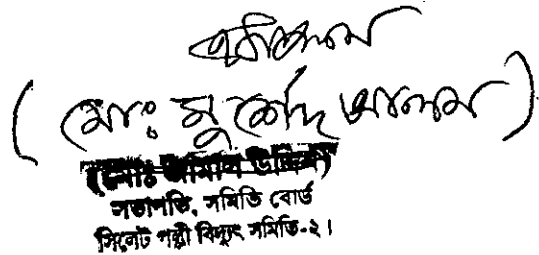 (মোঃ মুর্শেদ আলম)
(মোঃ আমিন উদ্দিন)
সভাপতি, সমিতি বোর্ড
সিলেট পল্লী বিদ্যুৎ সমিতি-২।